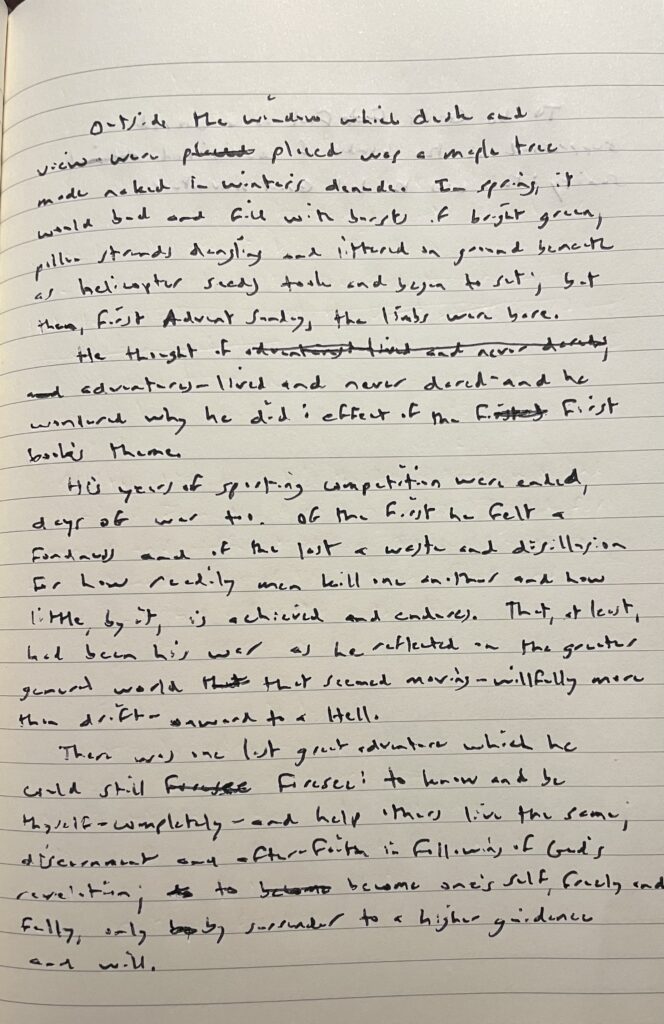 Outside the window which desk and
view were placed placed was a maple tree
made naked in winter's decade. In spring, it
would bud and fill with bursts of bright green,
pollen strands dangling and littered on ground beneath
as helicopter seeds took and began to set; but
then, First Advent Sunday, the limbs were bare.
He thought of adventures lived and never dared,
and adventures-lived and never dared-and he
wondered why he did: effect of the First
book's theme.
His years of sporting competition were ended,
days of war too. Of the first he felt a
fondness and of the last a waste and disillusion
for how readily men kill one another and how
little, by it, is achieved and endures. That, at least,
had been his war as he reflected on the greater
general world that that seemed moving-willfully more
than drift-onward to a Hell.
There was one last great adventure which he
could still foresee foresee: to know and be
thyself-completely-and help others live the same;
discernment and after-faith in following of God's
revelation; to to become become one's self, freely and
fully, only by by surrender to a higher guidance
and will.